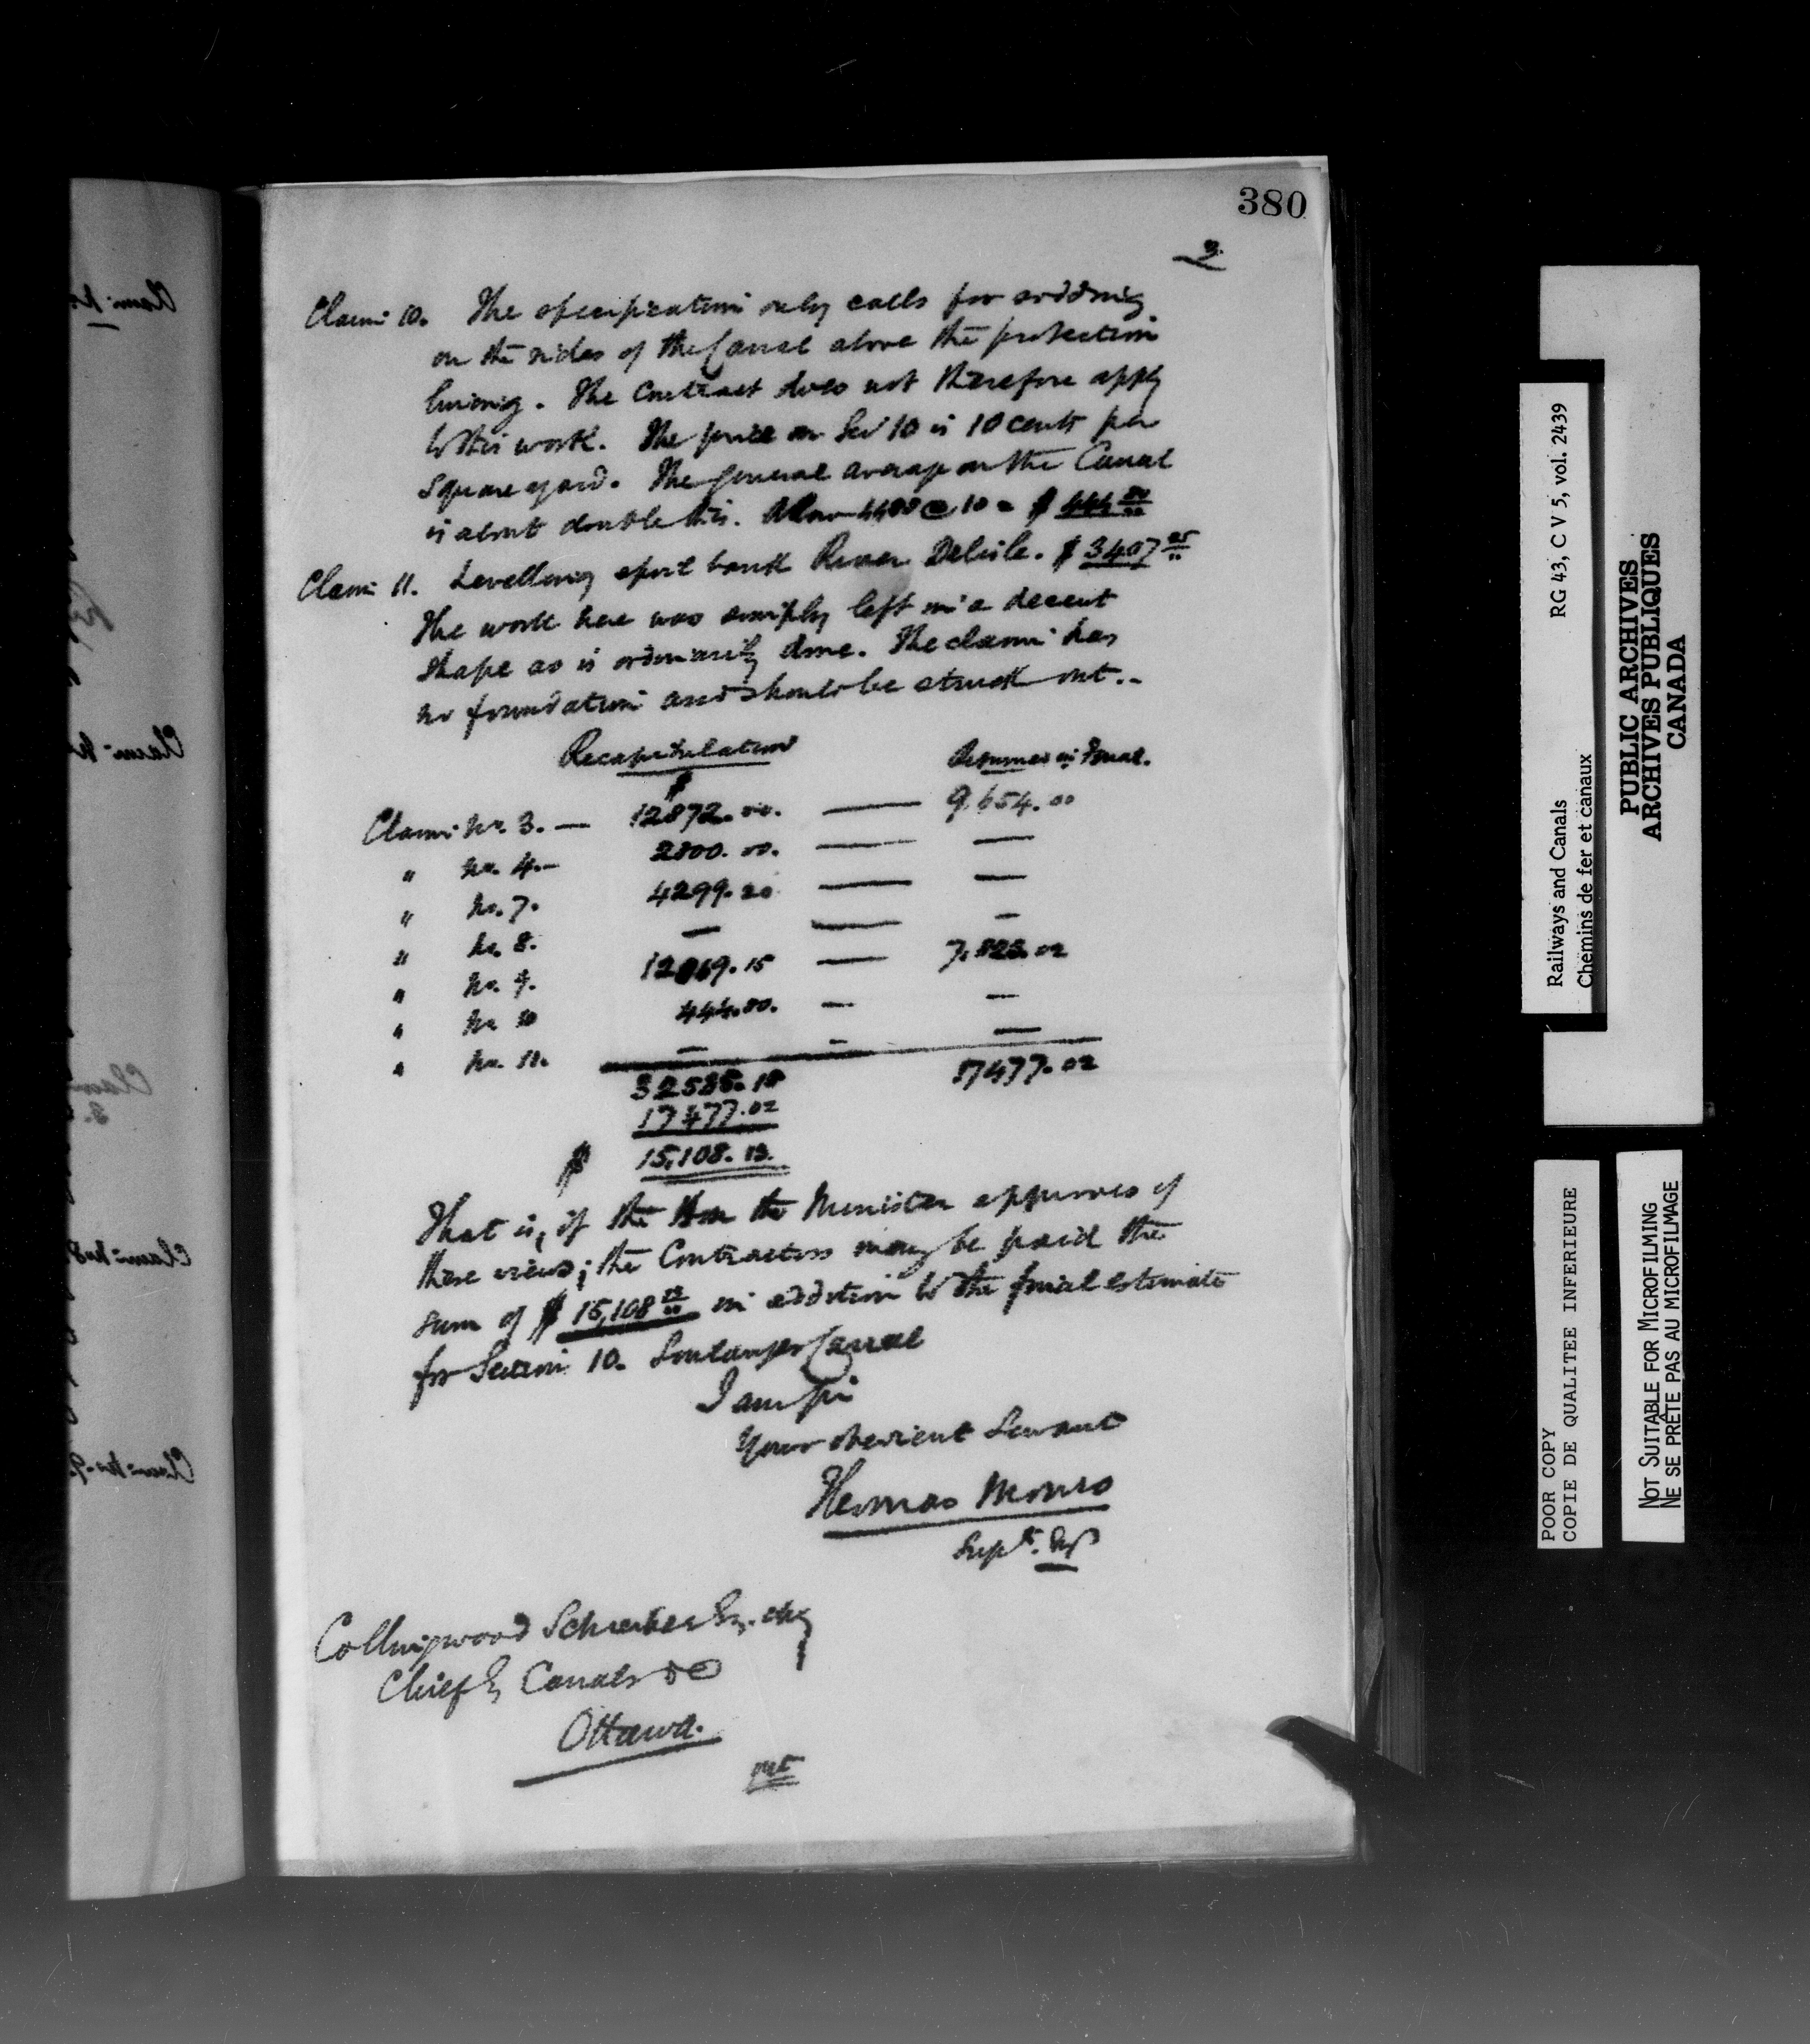 380
3.
Claim 10. The specification only calls for sodding
on the sides of the Canal above the protection
lining. The Contract does not therefore apply
to this work. The price on Sec 10 is 10 cents per
square yard. The general average on the Canal
is about double this. Allow @ 10 = $ 444 80
Claim 11. Levelling spoil bank River Delisle. $ 3407 25
The work here was simply left in a decent
shape as is ordinarily done. The claim has
no foundation and should be struck out.-
Recapitulation in Final.
$
Claim No. 3. — 12872.00. — 9.654.00
" No. 4.- 2800.00. — —
" No. 7. 4299.20 — —
" No. 8. — — —
" No. 9. 12069.15 — 7.823.02
" No 10 444.80. — —
" No. 11. — - —
32585.15 17477.02
17477.02
$ 15,108.13.
That is, if the Hon the Minister approves of
these views; the Contractors may be paid the
sum of $ 15,108 13 in addition to the final estimate
for Section 10. Soulanges Canal
I am Sir
Your obedient Servant
Thomas Monro
Supt.
Collingwood Schreiber Esq.
Chief Canals &c
Ottawa.
Claim No
Claim No
Claim No 8
Claim No. 9.
Railways and Canals RG 43, C V 5, vol. 2439
Chemins de fer et canaux
PUBLIC ARCHIVES
ARCHIVES PUBLIQUES
CANADA
POOR COPY
COPIE DE QUALITEE INFERIEURE
NOT SUITABLE FOR MICROFILMING
NE SE PRÊTE PAS AU MICROFILMAGE